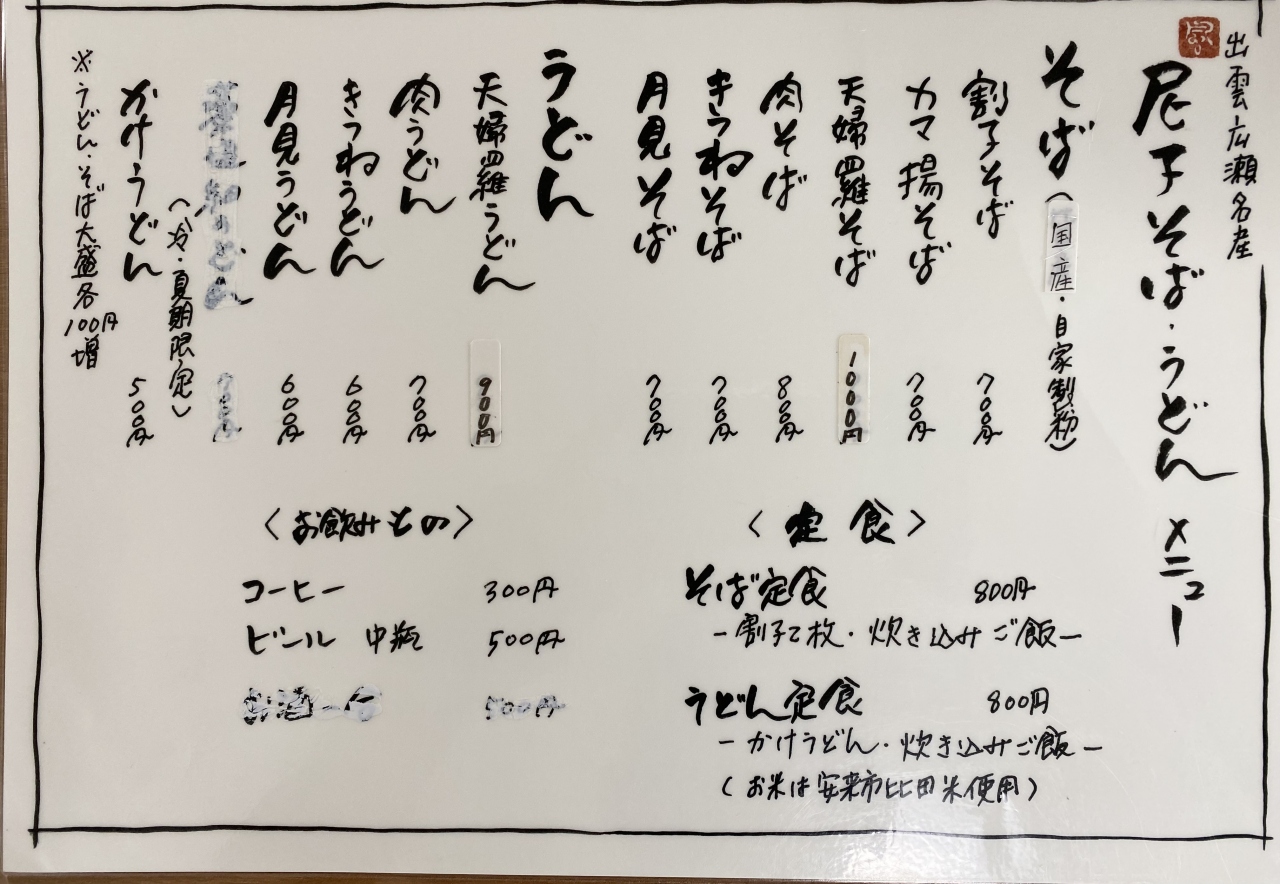 出雲広瀬名産
尼子そば・うどん メニュー
そば(国産・自家製粉)
割子そば 700円
カマ揚そば 700円
天婦羅そば 1000円
肉そば 800円
きつねそば 700円
月見そば 700円
うどん
天婦羅うどん 900円
肉うどん 700円
きつねうどん 600円
月見うどん 600円
うどん 700円
(冷・夏期限定)
かけうどん 500円
※うどん・そば大盛各100円増
〈定食〉
そば定食 800円
ー割子2枚・炊き込みご飯ー
うどん定食 800円
ーかけうどん・炊き込みご飯ー
(お米は安来市比田米使用)
〈お飲みもの〉
コーヒー 300円
ビール 中瓶 500円
お酒一合 500円